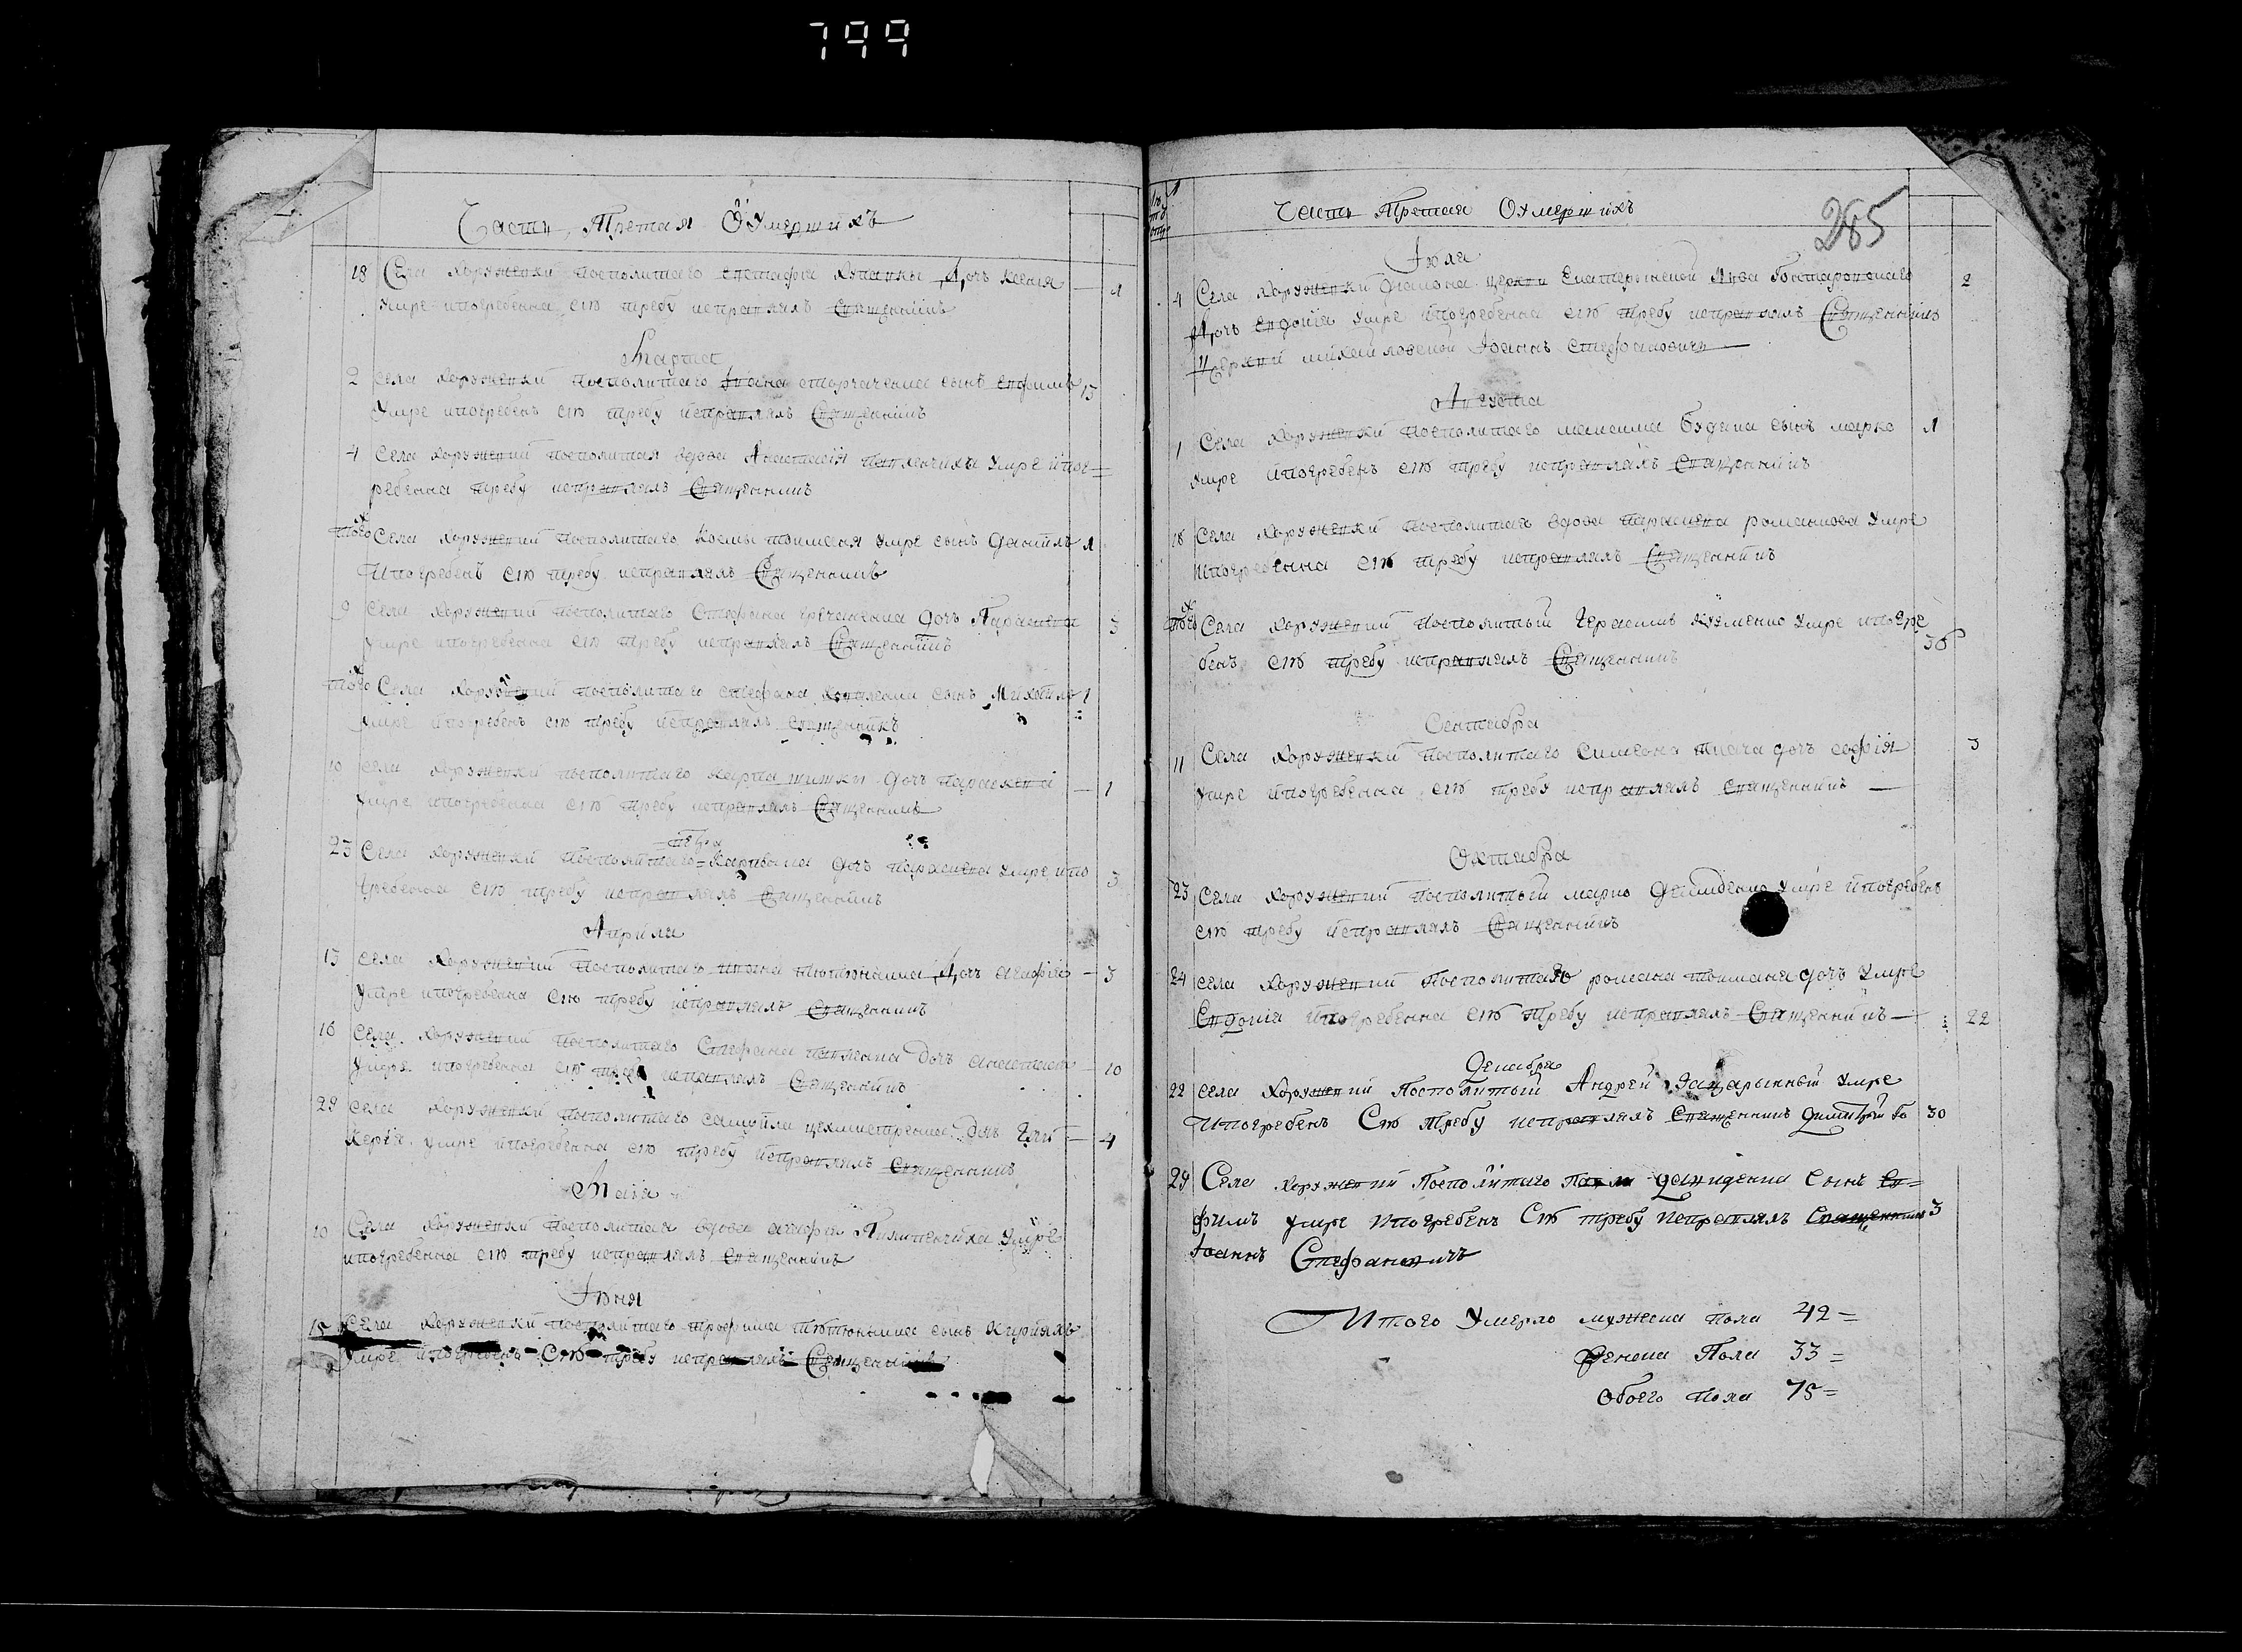 799
Часть Третая О Умершихъ
18 Села Хоружевки посполитого Дочь Ксенія 1
умре ипогребенна сію требу исправлялъ Священникъ
Марта
2 Села Хоружевки посполитого Ивана сынъ Евфимъ 15
умре ипогребенъ сію требу исправлялъ Священникъ
4 Села Хоружевки посполитая вдова Анастасія умре ипог=
ребенна требу исправлялъ Священникъ
того Села Хоружевки посполитого Космы умре сынъ Даніилъ 1
Ипогребенъ сію требу исправлялъ Священникъ
9 Села Хоружевки посполитого Стефана дочь Параскева 3
умре ипогребенна сію требу исправлялъ Священникъ
того Села Хоружевки посполитого стефана сынъ Михаилъ 1
умре ипогребенъ сію требу исправлялъ священникъ
10 Села Хоружевки посполитого карпа шишки дочь параскеви 1
умре ипогребенна сію требу исправлялъ Священникъ
петра
23 Села Хоружевки посполитого дочь параскева умре ипо 3
гребенна сію требу исправлялъ Священникъ
Априля
13 Села Хоружевки посполитого ивана Дочь агафія 3
умре ипогребенна сію требу исправлялъ Священникъ
16 Села Хоружевки посполитого Стефана Дочь 10
умре ипогребенна сію требу исправлялъ Священникъ
29 Села Хоружевки посполитого самуйла Дочь Гли
керія умре ипогребенна сію требу исправлялъ Священникъ 4
Маія
10 Села Хоружевки посполитая вдова агафія умре
ипогребенна сію требу исправлялъ Священникъ
Іюня
15 Села Хоружевки посполитого трофима сынъ Кирійлъ
умре ипогребенъ Сію требу исправлялъ Священникъ
Часть Третая Оумершихъ
285
Іюля
4 Села Хоружевки церкви 2
Дочь Евдокія умре ипогребенна сію требу исправлялъ Священникъ
церкви михайловской Іоаннъ Стефановичъ
Августа
1 Села Хоружевки посполитого сынъ марко 1
умре ипогребенъ сію требу исправлялъ Священникъ
18 Села Хоружевки посполитая вдова параскева романова умре
ипогребенна сію требу исправлялъ Священникъ
того Села Хоружевки посполитый Герасимъ Кузменко умре ипогре
бенъ сію требу исправлялъ Священникъ 36
Сентября
11 Села Хоружевки посполитого Симеона ткача дочь софія 3
умре ипогребенна сію требу исправлялъ священникъ
Октября
23 Села Хоружевки посполитый марко умре ипогребенъ
сію требу исправлялъ Священникъ
24 села Хоружевки посполитого романа дочь умре
Евдокія ипогребенна сію требу исправлялъ Священникъ 22
Декабря
22 села Хоружевки посполитый Андрей умре
Ипогребенъ Сію требу исправлялъ Священникъ 30
29 Села Хоружевки посполитого павла сынъ Ев=
фимъ умре ипогребенъ Сію требу исправлялъ Священникъ 3
Іоаннъ Стефановичъ
Итого Умерло мужеска пола 42=
Женска Пола 33=
Обоего пола 75=